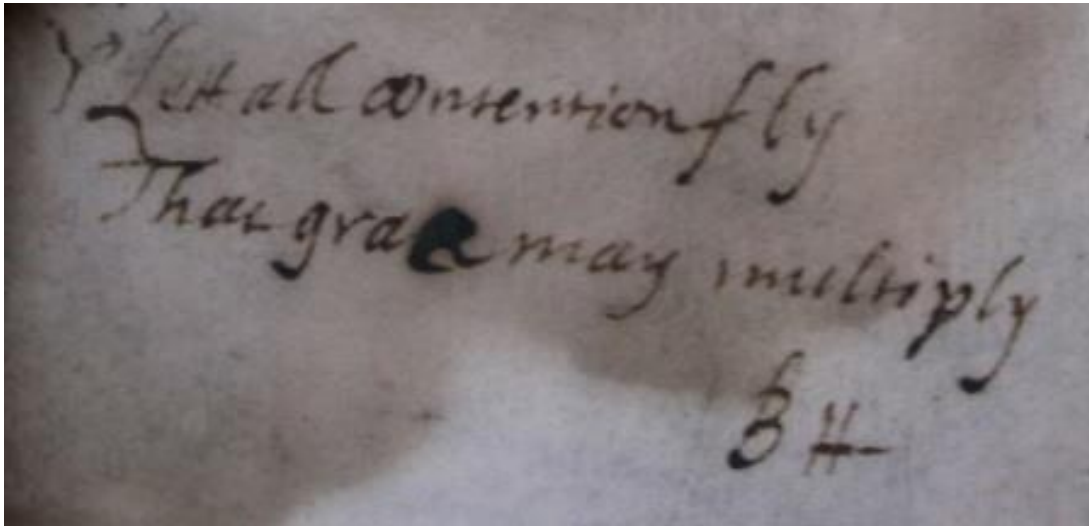 Lett all contention fly
That grace may multiply
B H